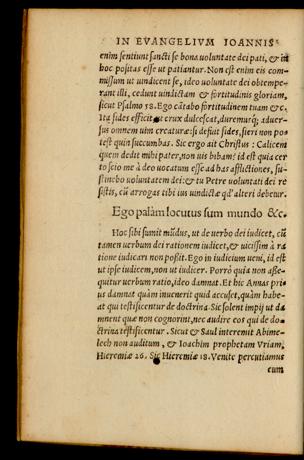 IN EVANGELIVM IOANNIS
enim sentiunt sancti se bona uoluntate dei pati, & in
hoc positas esse ut patiantur. Non est enim eis com-
missum ut uindicent se, ideo uoluntate dei obtempe-
rant illi, cedunt uindictam & fortitudinis gloriam,
sicut Psalmo 58. Ego cātabo fortitudinem tuam &c.
Ita fides efficit ut crux dulcescat, duremusq; aduer-
sus omnem uim creaturæ: si desiut fides, fieri non po-
test quin succumbas. Sic ergo ait Christus : Calicem
quem dedit mihi pater, non uis bibam? id est quia cer
to scio me à deo uocatum esse ad has afflictiones, su-
stinebo uoluntatem dei: & tu Petre uoluntati dei re
sistis, cū arrogas tibi ius uindictæ qd' alteri debetur.
Ego palàm locutus sum mundo &c.
Hoc sibi sumit mūdus, ut de uerbo dei iudicet, cū
tamen uerbum dei rationem iudicet, & uicissim à ra
tione iudicari non possit. Ego in iudicium ueni, id est
ut ipse iudicem, non ut iudicer. Porrò quia non asse-
quitur uerbum ratio, ideo damnat. Et hic Annas pri
us damnat quàm inuenerit quid accuset, quàm habe-
at qui testificentur de doctrina. Sic solent impij ut da
mnent quæ non cognorint, nec audire eos qui de do-
ctrina testificentur. Sicut & Saul interemit Abime-
lech non auditum, & Ioachim prophetam Vriam,
Hieremiæ 26. Sic Hieremiæ 18. Venite percutiamus
eum